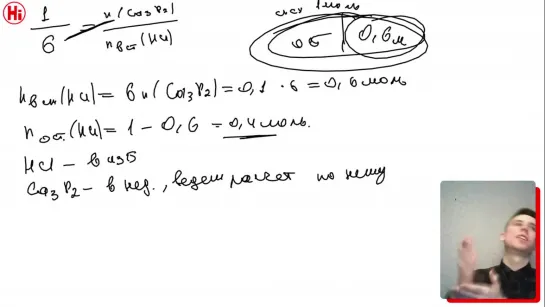 Hi
исх 1 моль
1/6 = n(Ca₃P₂)/nвст(HCl)
ост | 0,6 м
nвст(HCl) = 6n(Ca₃P₂) = 0,1 · 6 = 0,6 моль
nост.(HCl) = 1 - 0,6 = 0,4 моль.
HCl - в изб
Ca₃P₂ - в нед., ведем расчет по нему